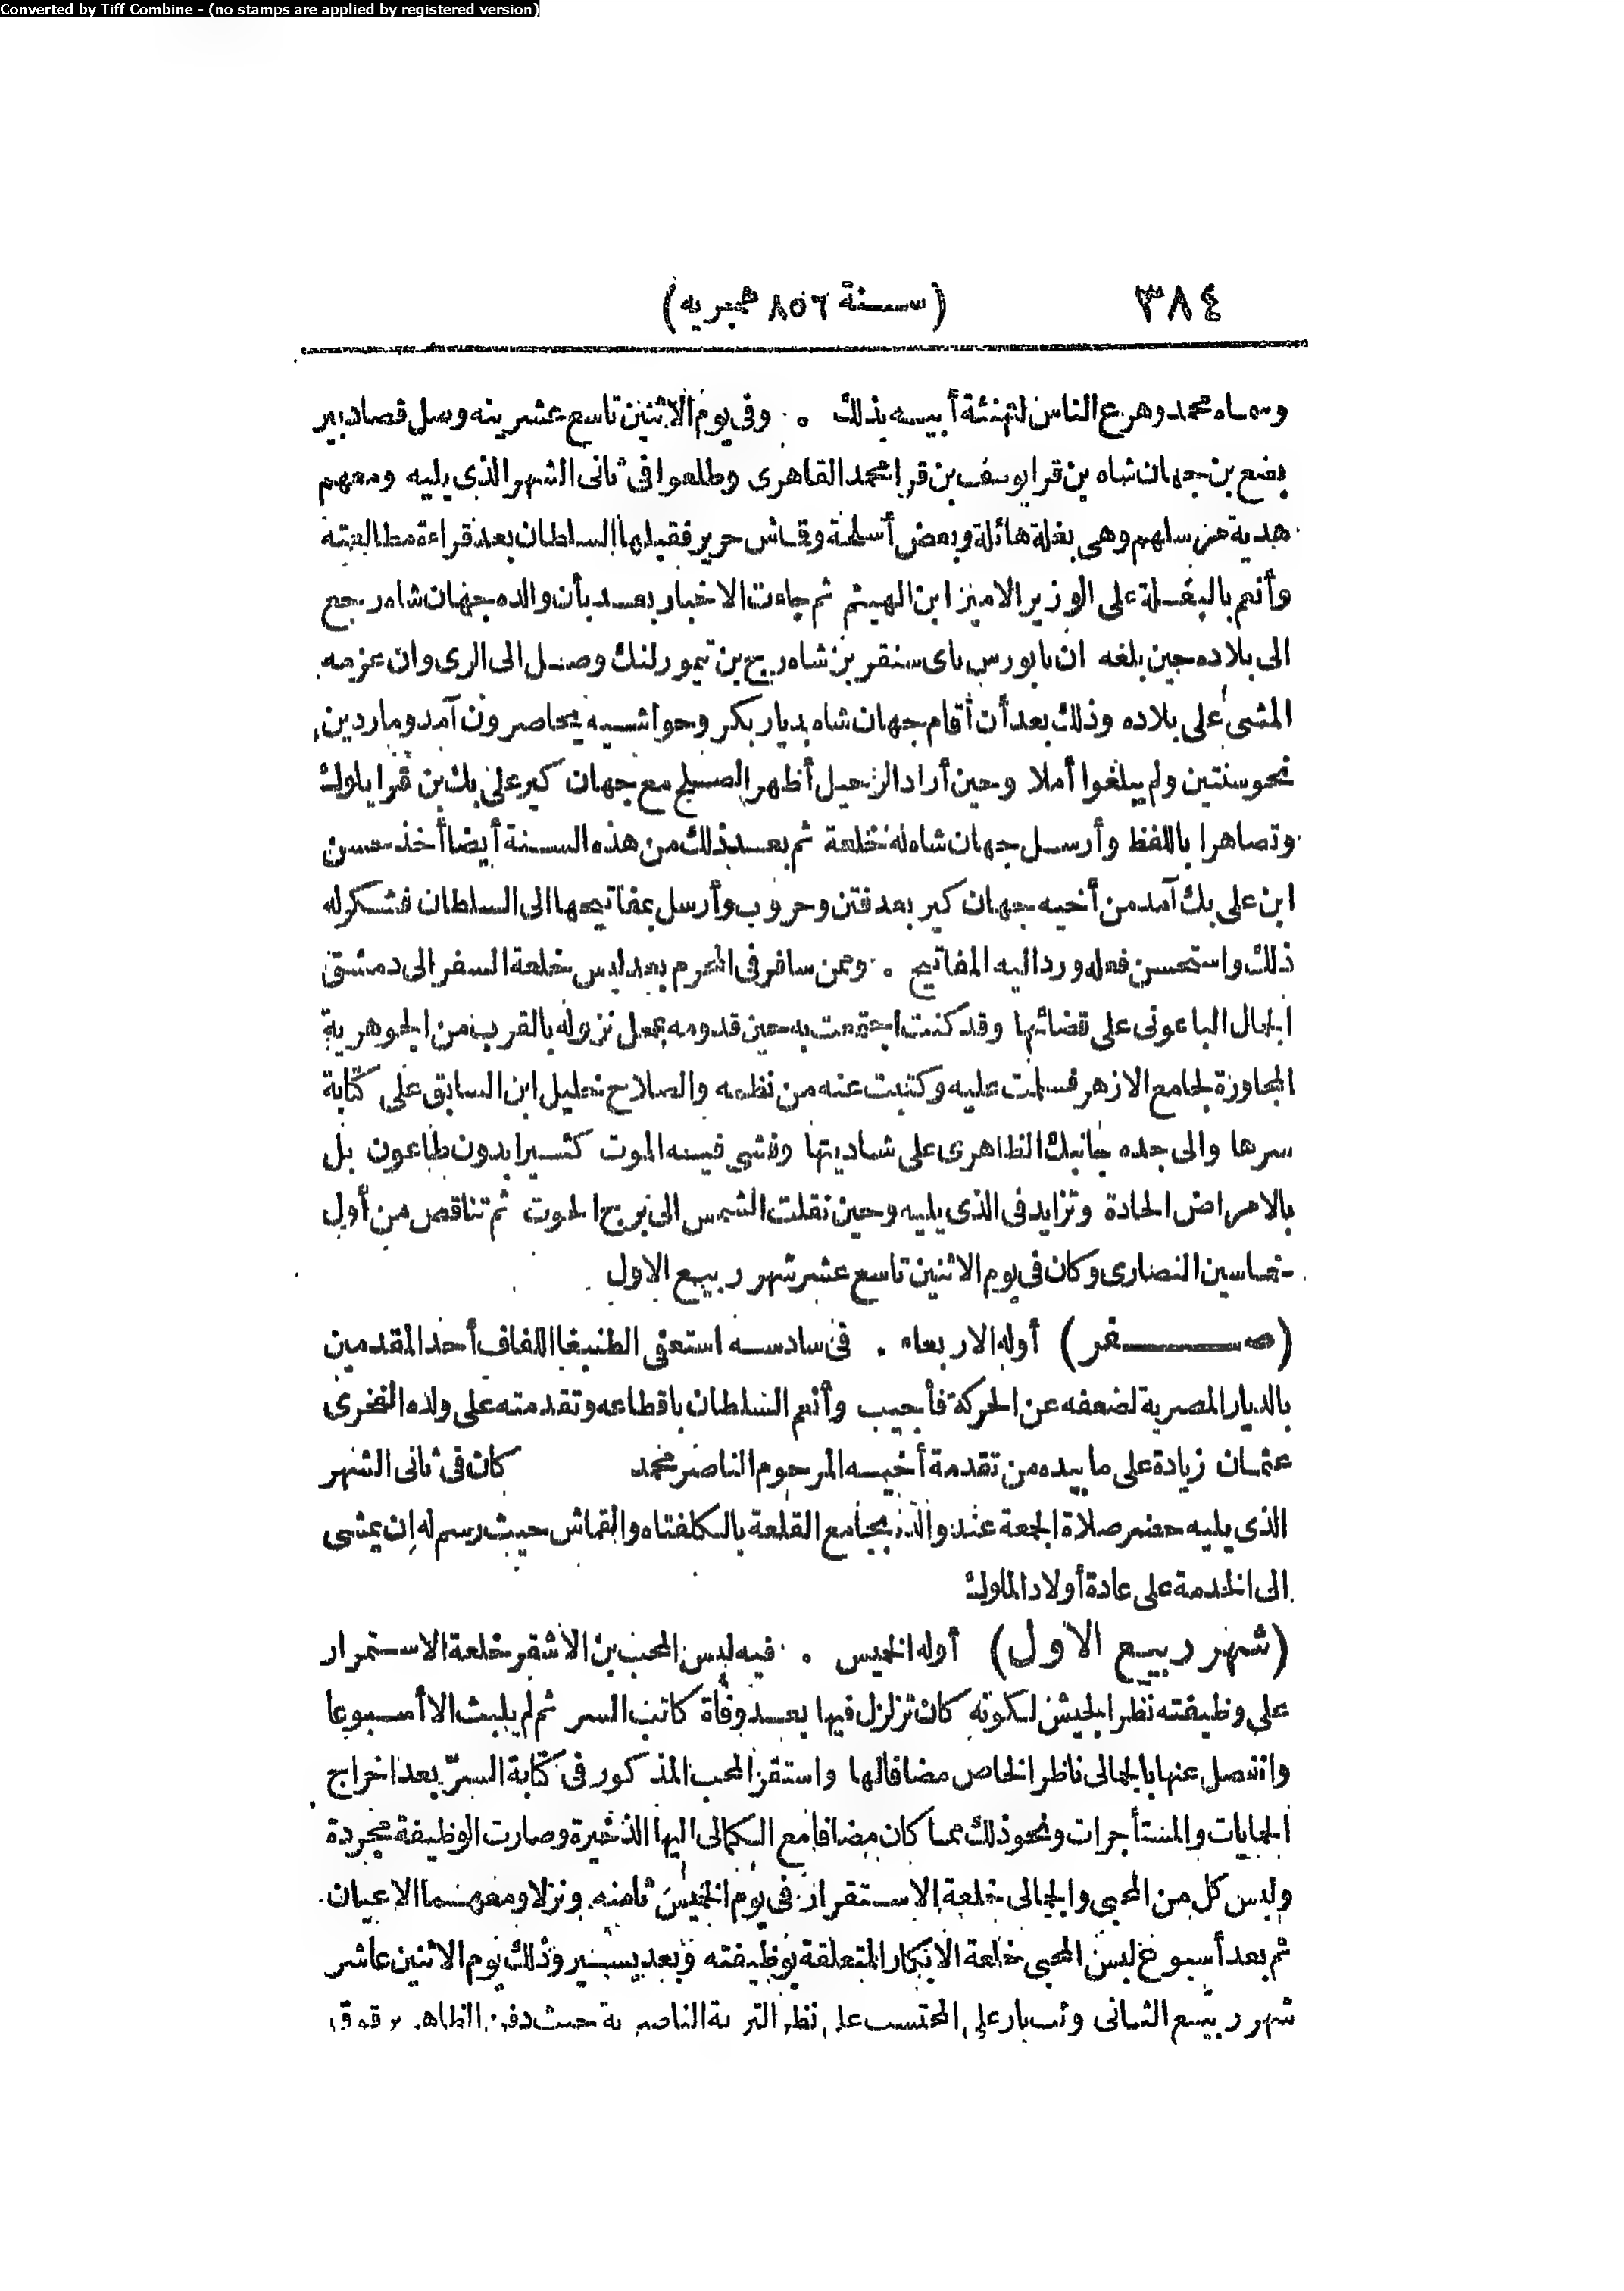 Converted by Tiff Combine - (no stamps are applied by registered version)
٣٨٤ (سنة ٨٥٦ هجريه)
وسماه محمد وهرع الناس لتهنئة أبيه بذلك . وفى يوم الاثنين تاسع عشرينه وصل قصاد بير
بضع بن جهان شاه بن قرا يوسف بن قرا محمد القاهرى وطلعوا فى ثانى الشهر الذى يليه ومعهم
هدية من مرسلهم وهى بغلة هائلة وبعض أسلحة وقماش حرير فقبلها السلطان بعد قراءة مطالعته
وأنعم بالبغلة على الوزير الامين ابن الهيثم ثم جاءت الاخبار بعد بأن والده جهان شاه رجع
الى بلاده حين بلغه ان بابور س باى سنقر بن شاه رخ بن تيمورلنك وصل الى الرى وان عزمه
المشى على بلاده وذلك بعد أن أقام جهان شاه بديار بكر وحواشيه يحاصرون آمد وماردين
نحو سنتين ولم يبلغوا أملا وحين أراد الرحيل أظهر الصلح مع جهان كير على بك بن قرا يلوك
وتصاهرا باللفظ وأرسل جهان شاه له خلعة ثم بعد ذلك من هذه السنة أيضا أخذ حسن
ابن على بك آمد من أخيه جهان كير بعد فتن وحروب وأرسل بمفاتيحها الى السلطان فشكر له
ذلك واستحسن فعله ورد اليه المفاتيح . وممن سافر فى المحرم بعد لبس خلعة السفر الى دمشق
الجمال الباعونى على قضائها وقد كنت اجتمعت به حين قدومه بمحل نزوله بالقرب من الجوهرية
المجاورة لجامع الازهر فسلمت عليه وكتبت عنه من نظمه والصلاح خليل ابن السابق على كتابة
سرها والى جده جانبك الظاهرى على شاديتها وفشى فيه الموت كثيرا بدون طاعون بل
بالامراض الحادة وتزايد فى الذى يليه وحين نقلت الشمس الى برج الحوت ثم تناقص من أول
خماسين النصارى وكان فى يوم الاثنين تاسع عشر شهر ربيع الاول
(صفر) أوله الاربعاء . فى سادسه استعفى الطنبغا اللفاف أحد المقدمين
بالديار المصرية لضعفه عن الحركة فأجيب وأنعم السلطان باقطاعه وتقدمته على ولده الفخرى
عثمان زيادة على ما بيده من تقدمة أخيه المرحوم الناصر محمد كان فى ثانى الشهر
الذى يليه حضر صلاة الجمعة عند والده بجامع القلعة بالكلفتاه والقماش حيث رسم له ان يمشى
الى الخدمة على عادة أولاد الملوك
(شهر ربيع الاول) أوله الخميس . فيه لبس المحب بن الاشقر خلعة الاستمرار
على وظيفته نظر الجيش لكونه كان تزلزل فيها بعد وفاة كاتب السر ثم لم يلبث الا أسبوعا
وانفصل عنها بالجمالى ناظر الخاص مضافا لها واستقر المحب المذكور فى كتابة السرّ بعد اخراج
الجبايات والمستأجرات ونحو ذلك مما كان مضافا مع الكمالى اليها الذخيرة وصارت الوظيفة مجردة
ولبس كل من المحبى والجمالى خلعة الاستقرار فى يوم الخميس ثامنه ونزلا ومعهما الاعيان
ثم بعد أسبوع لبس المحبى خلعة الانكار المتعلقة بوظيفته وبعد يسير وذلك يوم الاثنين عاشر
شهر ربيع الثانى وثب يار على المحتسب على نظر التربة الناصرية حيث دفن الظاهر برقوق